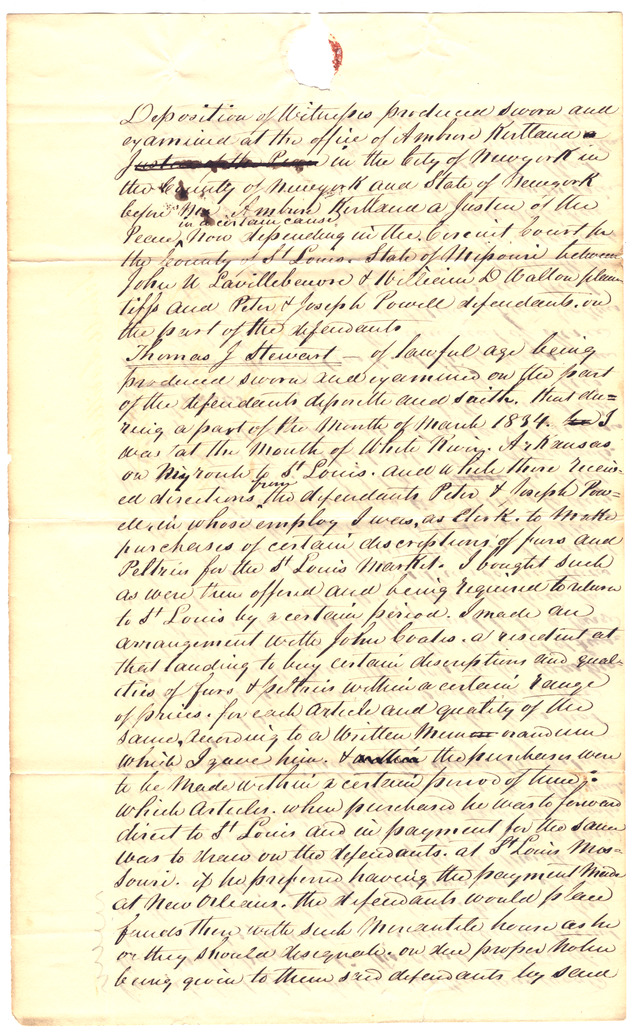 Deposition of Witnesses produced sworn and
examined at the office of Ambrose Kirtland a
Justice of the Peace in the City of Newyork in
the County of Newyork and State of Newyork
before Ambrose Kirtland a Justice of the
in a certain cause
Peace, Now depending in the Circuit Court for
the County of St Louis. State of Missouri between
John N & William D Walton plain
tiffs and Peter & Joseph Powell defendants. on
the part of the defendants
Thomas J Stewart — of lawful age being
produced sworn and examined on the part
of the defendants deposeth and saith. that du=
ring a part of the Month of March 1834. I
was at the Mouth of White River. Arkansas
on My route to St Louis. and while there receiv=
ed directions from the defendants Peter & Joseph Pow=
ell, in whose employ I was, as Clerk. to Make
purchases of certain discriptions of furs and
Peltries for the St Louis Market. I bought such
as were then offered and being required to return
to St Louis by a certain period. I made an
arrangement with John Coates. a resident at
that landing to buy certain discriptions and quali
ties of furs & peltries within a certain range
of prices. for each Article and quality of the
same, according to a Written Memorandum
which I gave him. & the purchases were
to be Made within a certain period of time;
which Articles. when purchased he was to forward
direct to St Louis and in payment for the same
was to draw on the defendants. at St Louis Mis=
souri. if he preferred having the payment Made
at New Orleans. the defendants would place
funds there with such Mercantile house as he
or they should designate. on due proper Notice
being given to them said defendants by said